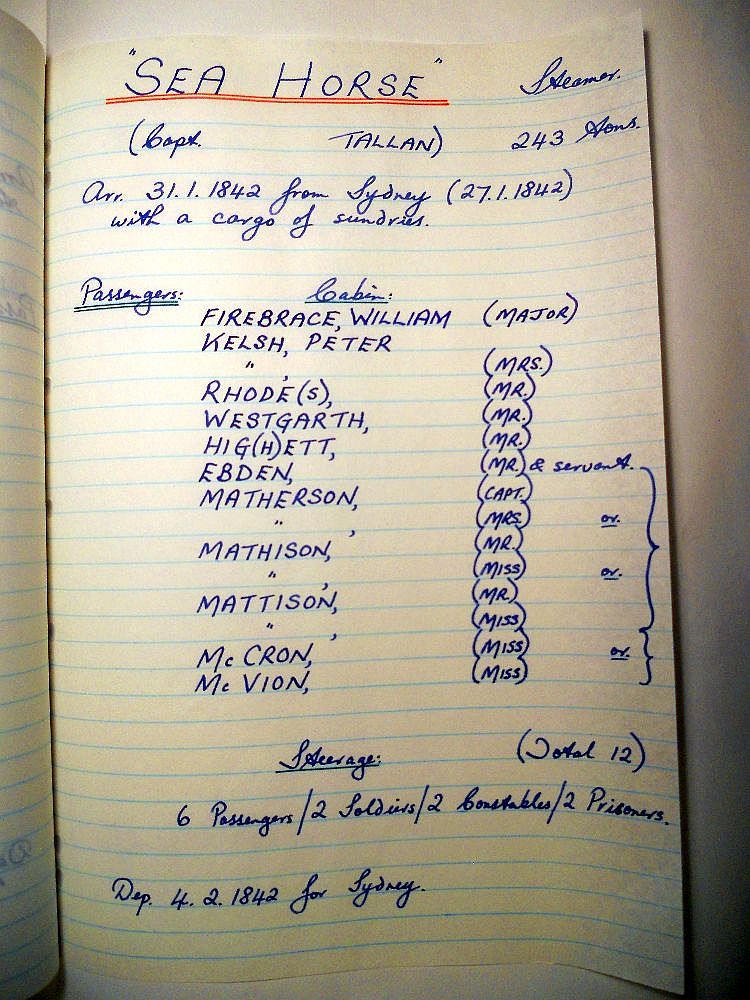 "SEA HORSE" Steamer.
(Capt. TALLAN) 243 tons.
Arr. 31.1.1842 from Sydney (27.1.1842)
with a cargo of sundries.
Passengers: Cabin:
FIREBRACE, WILLIAM (MAJOR)
KELSH, PETER
" , (MRS.)
RHODE(S), (MR.)
WESTGARTH, (MR.)
HIG(H)ETT, (MR.)
EBDEN, (MR.) & servant.
MATHERSON, (CAPT.)
" , (MRS.) or.
MATHISON, (MR.)
" , (MISS) or.
MATTISON, (MR.)
" , (MISS)
McCRON, (MISS) or.
McVION, (MISS)
Steerage: (Total 12)
6 Passengers/2 Soldiers/2 Constables/2 Prisoners.
Dep. 4.2.1842 for Sydney.